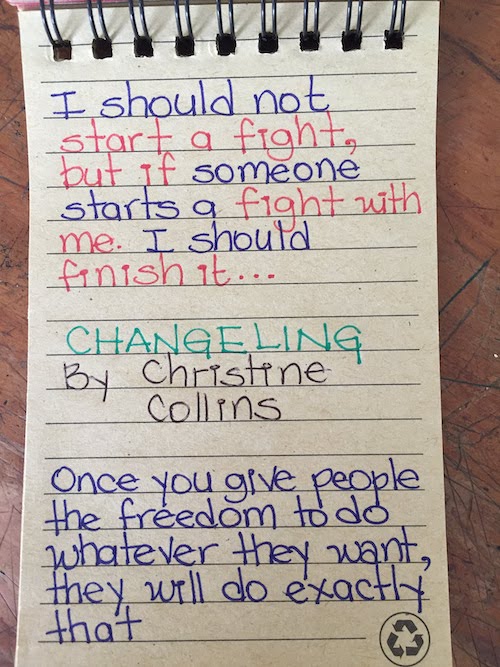 I should not
start a fight,
but if someone
starts a fight with
me. I should
finish it...
CHANGELING
By Christine
Collins
Once you give people
the freedom to do
whatever they want,
they will do exactly
that